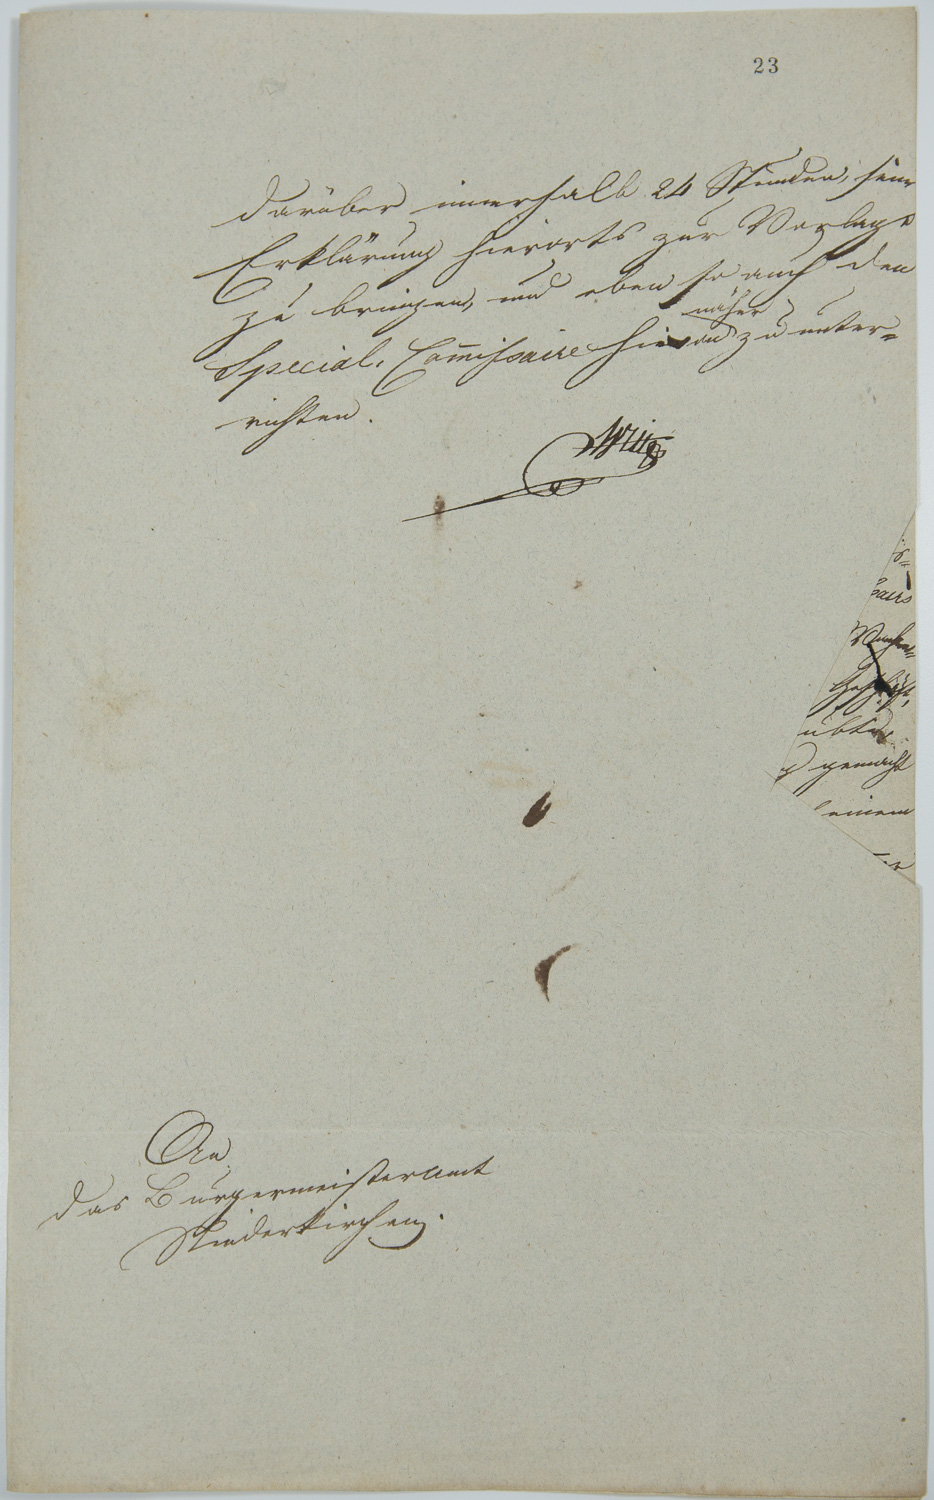 23
darüber innerhalb 24 Stunden, seine
Erklärung hierorts zur Vorlage
zu bringen, und eben so auch den
näher
Special. Com̅issaire hievon zu unter-
richten.
An
das Bürgermeisteramt
Niederkirchen.
gemacht
einem